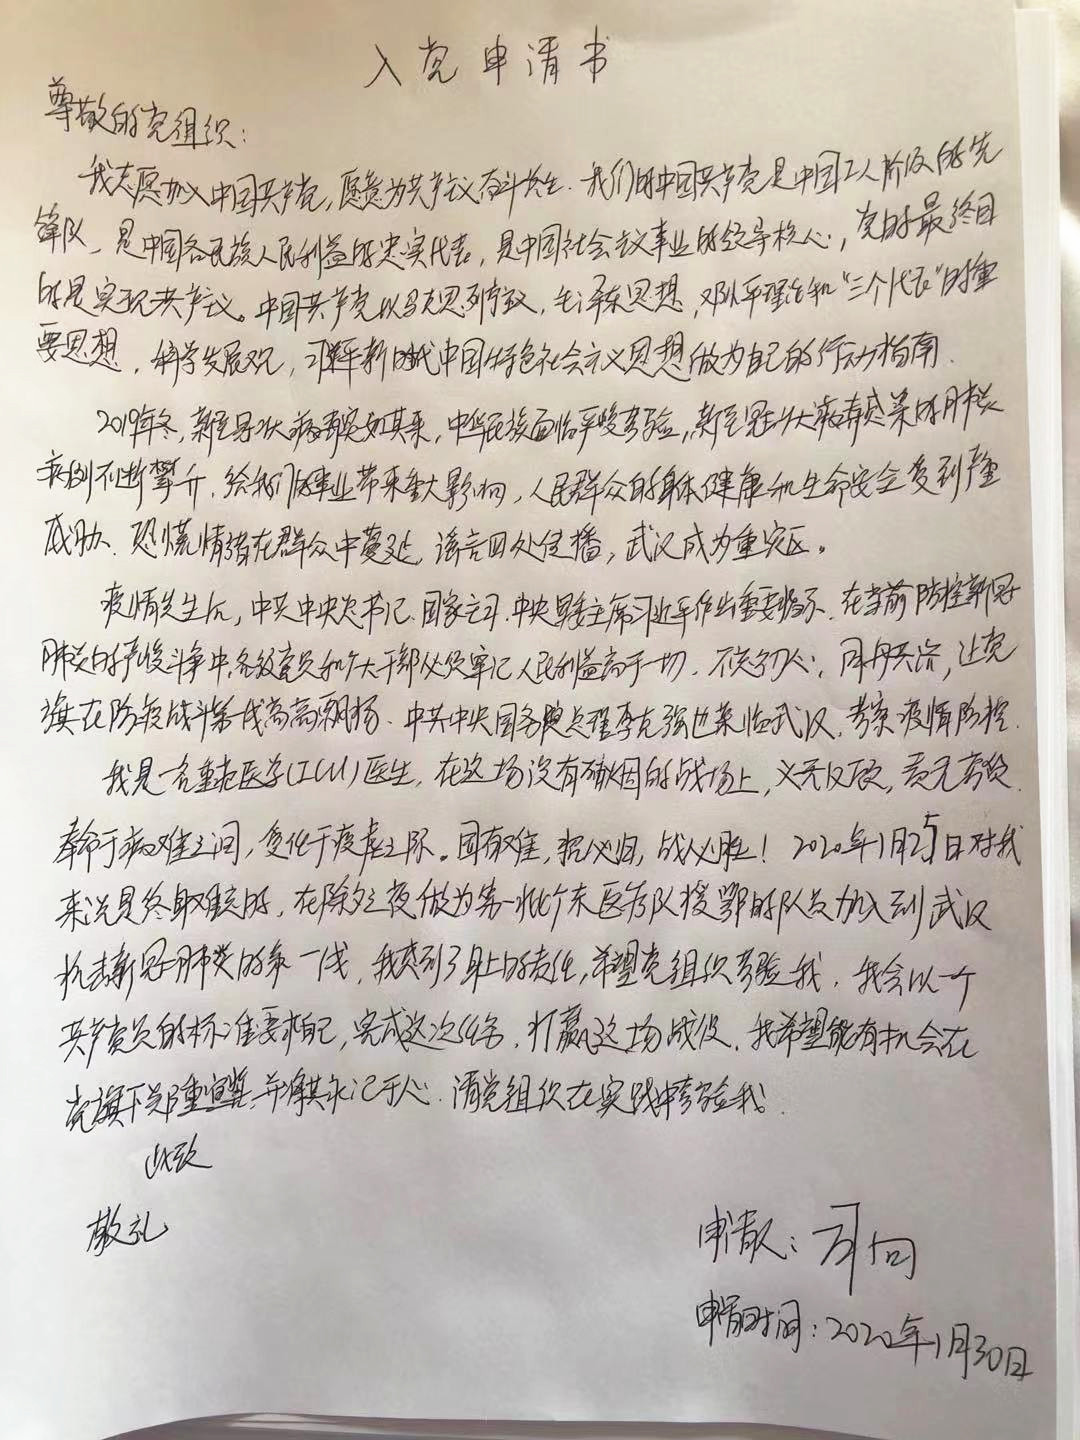 入党申请书
尊敬的党组织：
我志愿加入中国共产党，愿意为共产主义奋斗终生．我们的中国共产党是中国工人阶级的先
锋队、是中国各民族人民利益的忠实代表，是中国社会主义事业的领导核心，党的最终目
的是实现共产主义。中国共产党以马克思列宁主义、毛泽东思想，邓小平理论和“三个代表”的重
要思想，科学发展观，习近平新时代中国特色社会主义思想做为自己的行动指南．
2019年冬，新型冠状病毒突如其来，中华民族面临严峻考验，新型冠状病毒感染的肺炎
病例不断攀升．给我们的事业带来重大影响，人民群众的身体健康和生命安全受到严重
威胁、恐慌情绪在群众中蔓延，谣言四处传播，武汉成为重灾区。
疫情发生后，中共中央总书记．国家主席．中央军委主席习近平作出重要指示．在当前防控新冠
肺炎的严峻斗争中，各级党员和广大干部必须牢记人民利益高于一切．不忘初心，同舟共济，让党
旗在防疫战斗第一线高高飘扬．中共中央国务院总理李克强也来临武汉，考察疫情防控．
我是一名重症医学（ICU）医生，在这场没有硝烟的战场上，义无反顾，责无旁贷．
奉命于病难之间，受任于疫虐之际。国有难，招必回，战必胜！2020年1月25日对我
来说是终身难忘的，在除夕之夜做为第一批广东医疗队援鄂的队员加入到武汉
抗击新冠肺炎的第一线，我感到了身上的责任，希望党组织考验我．我会以一个
共产党员的标准要求自己，完成这次任务，打赢这场战役．我希望能有机会在
党旗下郑重宣誓，并将其永记于心．请党组织在实践中考验我．
此致
敬礼
申请人：司向
申请时间：2020年1月30日